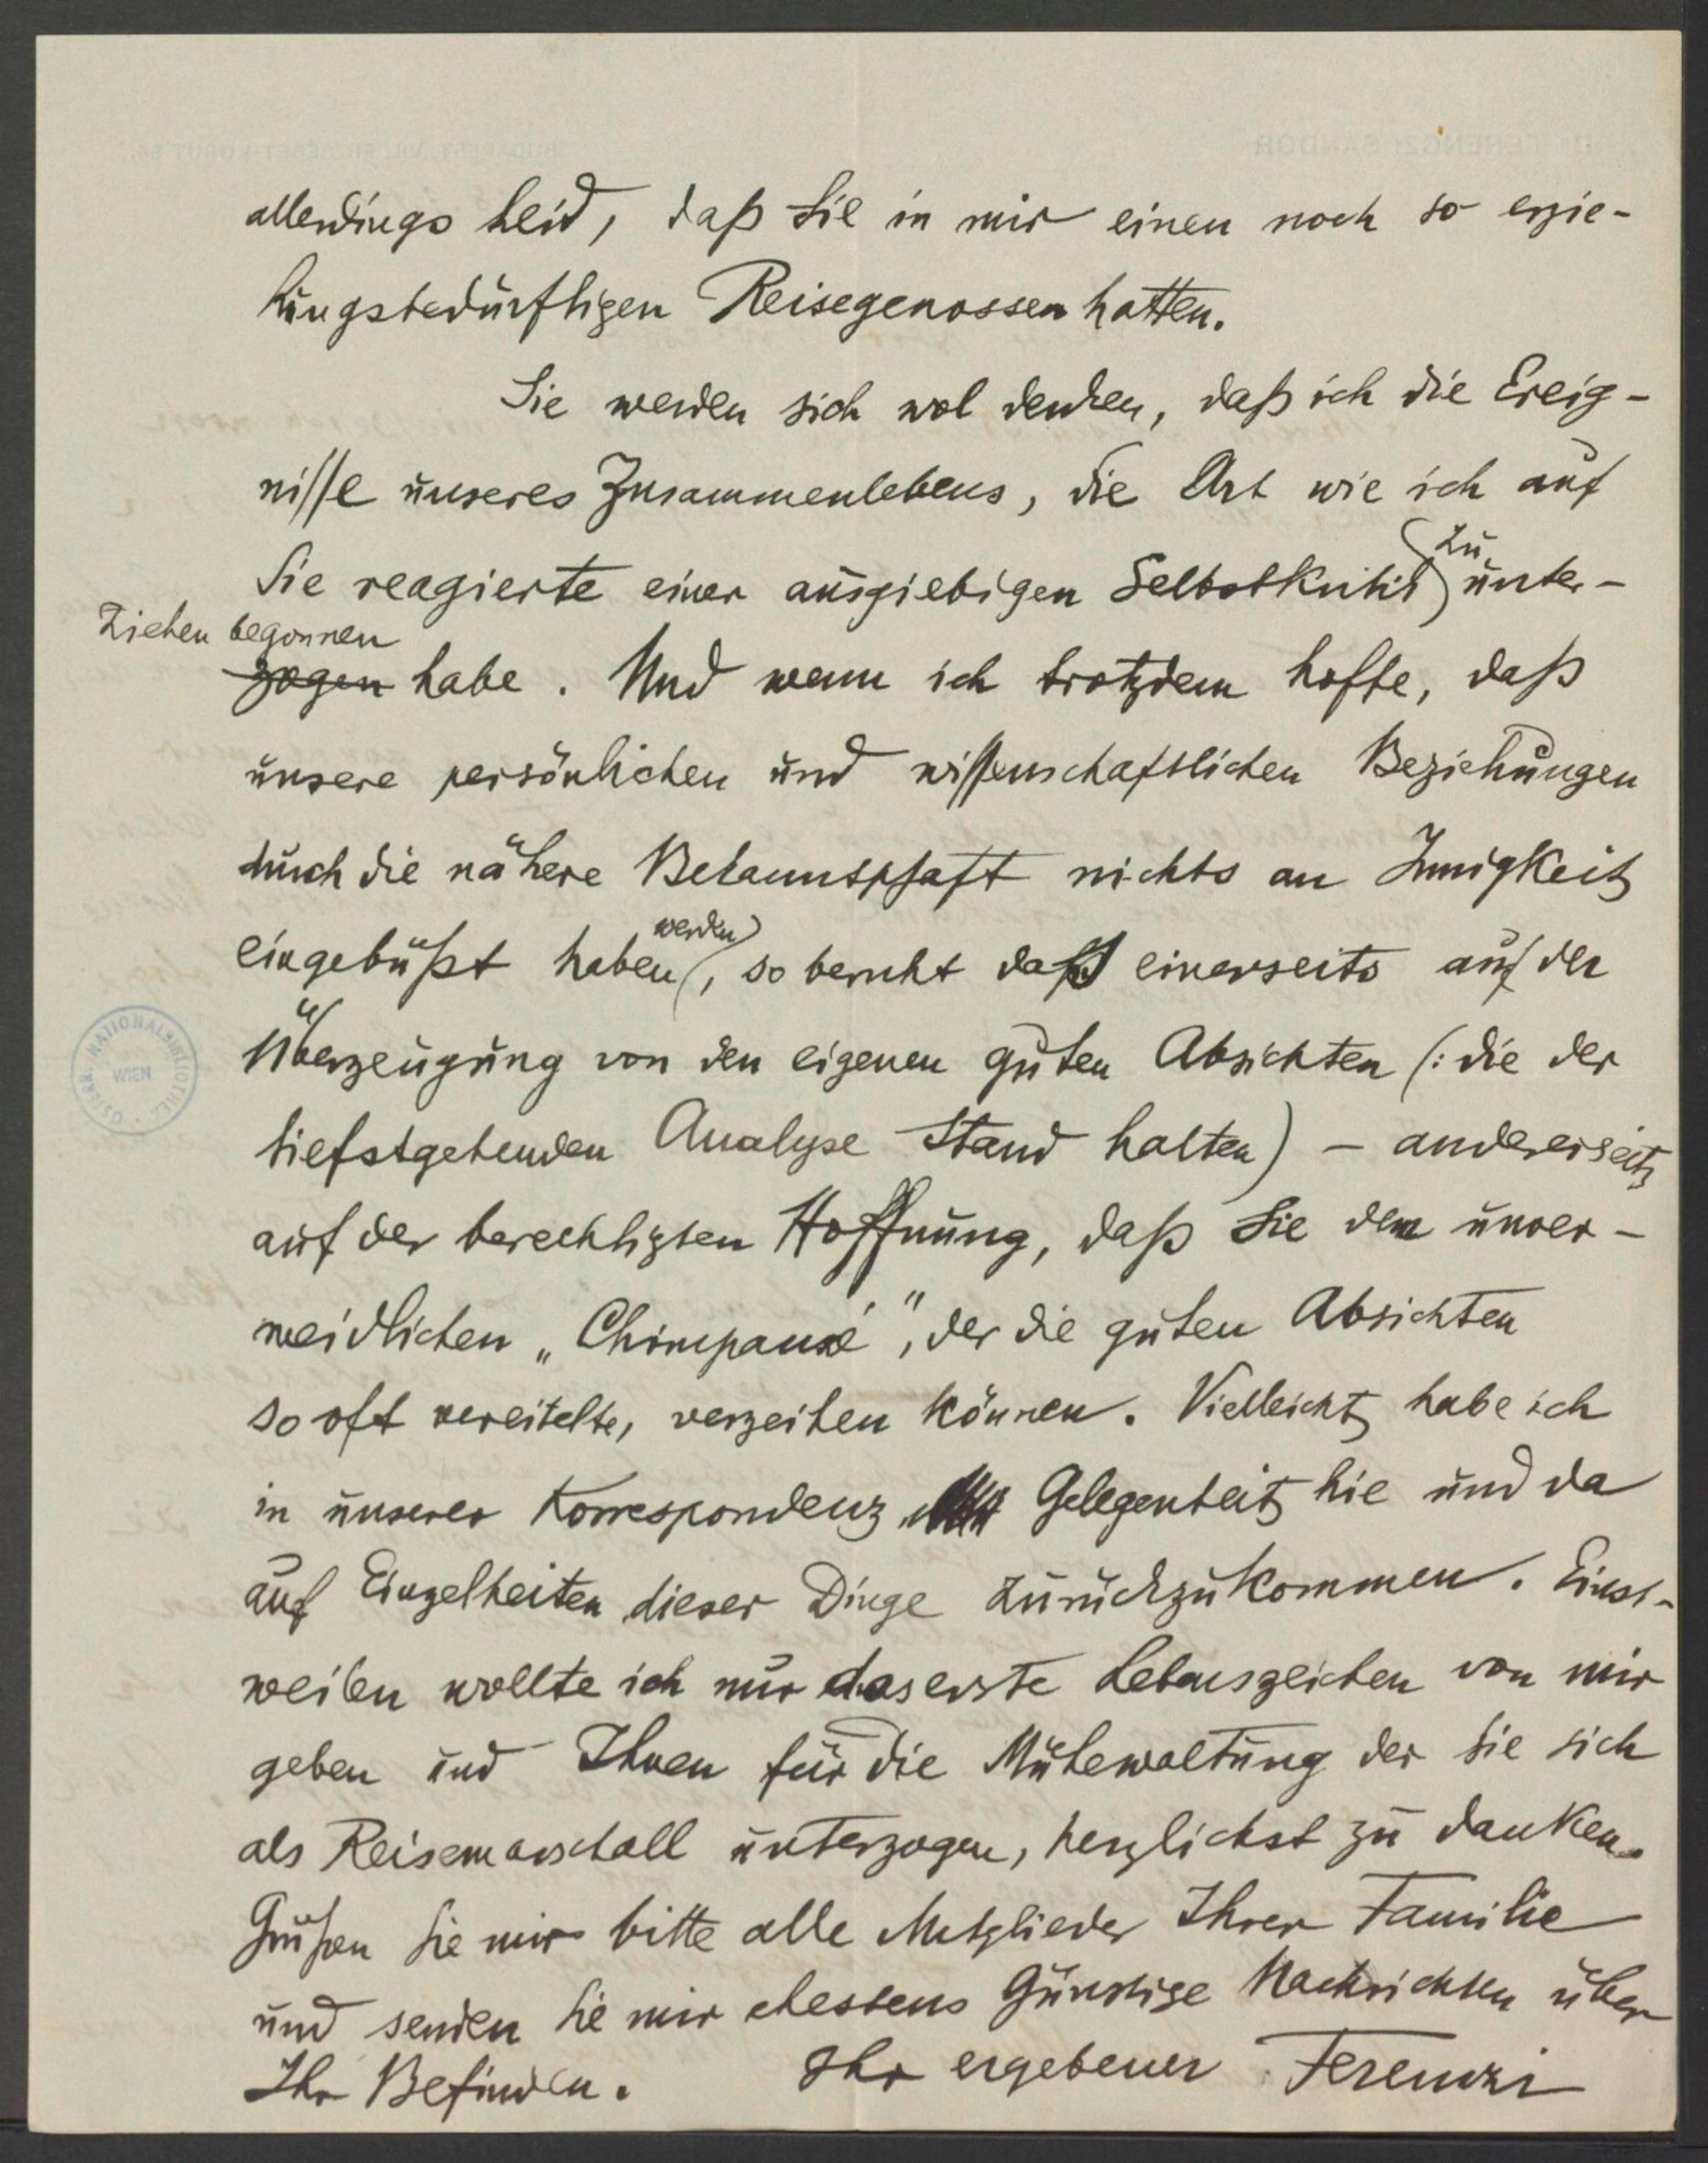 allerdings leid, daß Sie in mir einen noch so erzie-
hungsbedürftigen Reisegenossen hatten.
Sie werden sich wol denken, daß ich die Ereig-
nisse unseres Zusammenlebens, die Art wie ich auf
Sie reagierte einer ausgiebigen Selbstkritik zu unter-
ziehen begonnen
zogen habe. Und wenn ich trotzdem hoffe, daß
unsere persönlichen und wissenschaftlichen Beziehungen
durch die nähere Bekanntschaft nichts an Innigkeit
eingebüßt haben werden, so beruht das einerseits auf der
Überzeugung von den eigenen guten Absichten (: die der
tiefstgehenden Analyse Stand halten) – andererseits
auf der berechtigten Hoffnung, daß Sie dem unver-
meidlichen „Chimpansé", der die guten Absichten
so oft vereitelte, verzeihen können. Vielleicht habe ich
in unserer Korrespondenz Gelegenheit hie und da
auf Einzelheiten dieser Dinge zurückzukommen. Einst-
weilen wollte ich nur das erste Lebenszeichen von mir
geben und Ihnen für die Mühewaltung der Sie sich
als Reisemarschall unterzogen, herzlichst zu danken.
Grüßen Sie mir bitte alle Mitglieder Ihrer Familie
und senden Sie mir ehestens günstige Nachrichten über
Ihr Befinden. Ihr ergebener Ferenczi
ÖSTERR. NATIONALBIBLIOTHEK WIEN